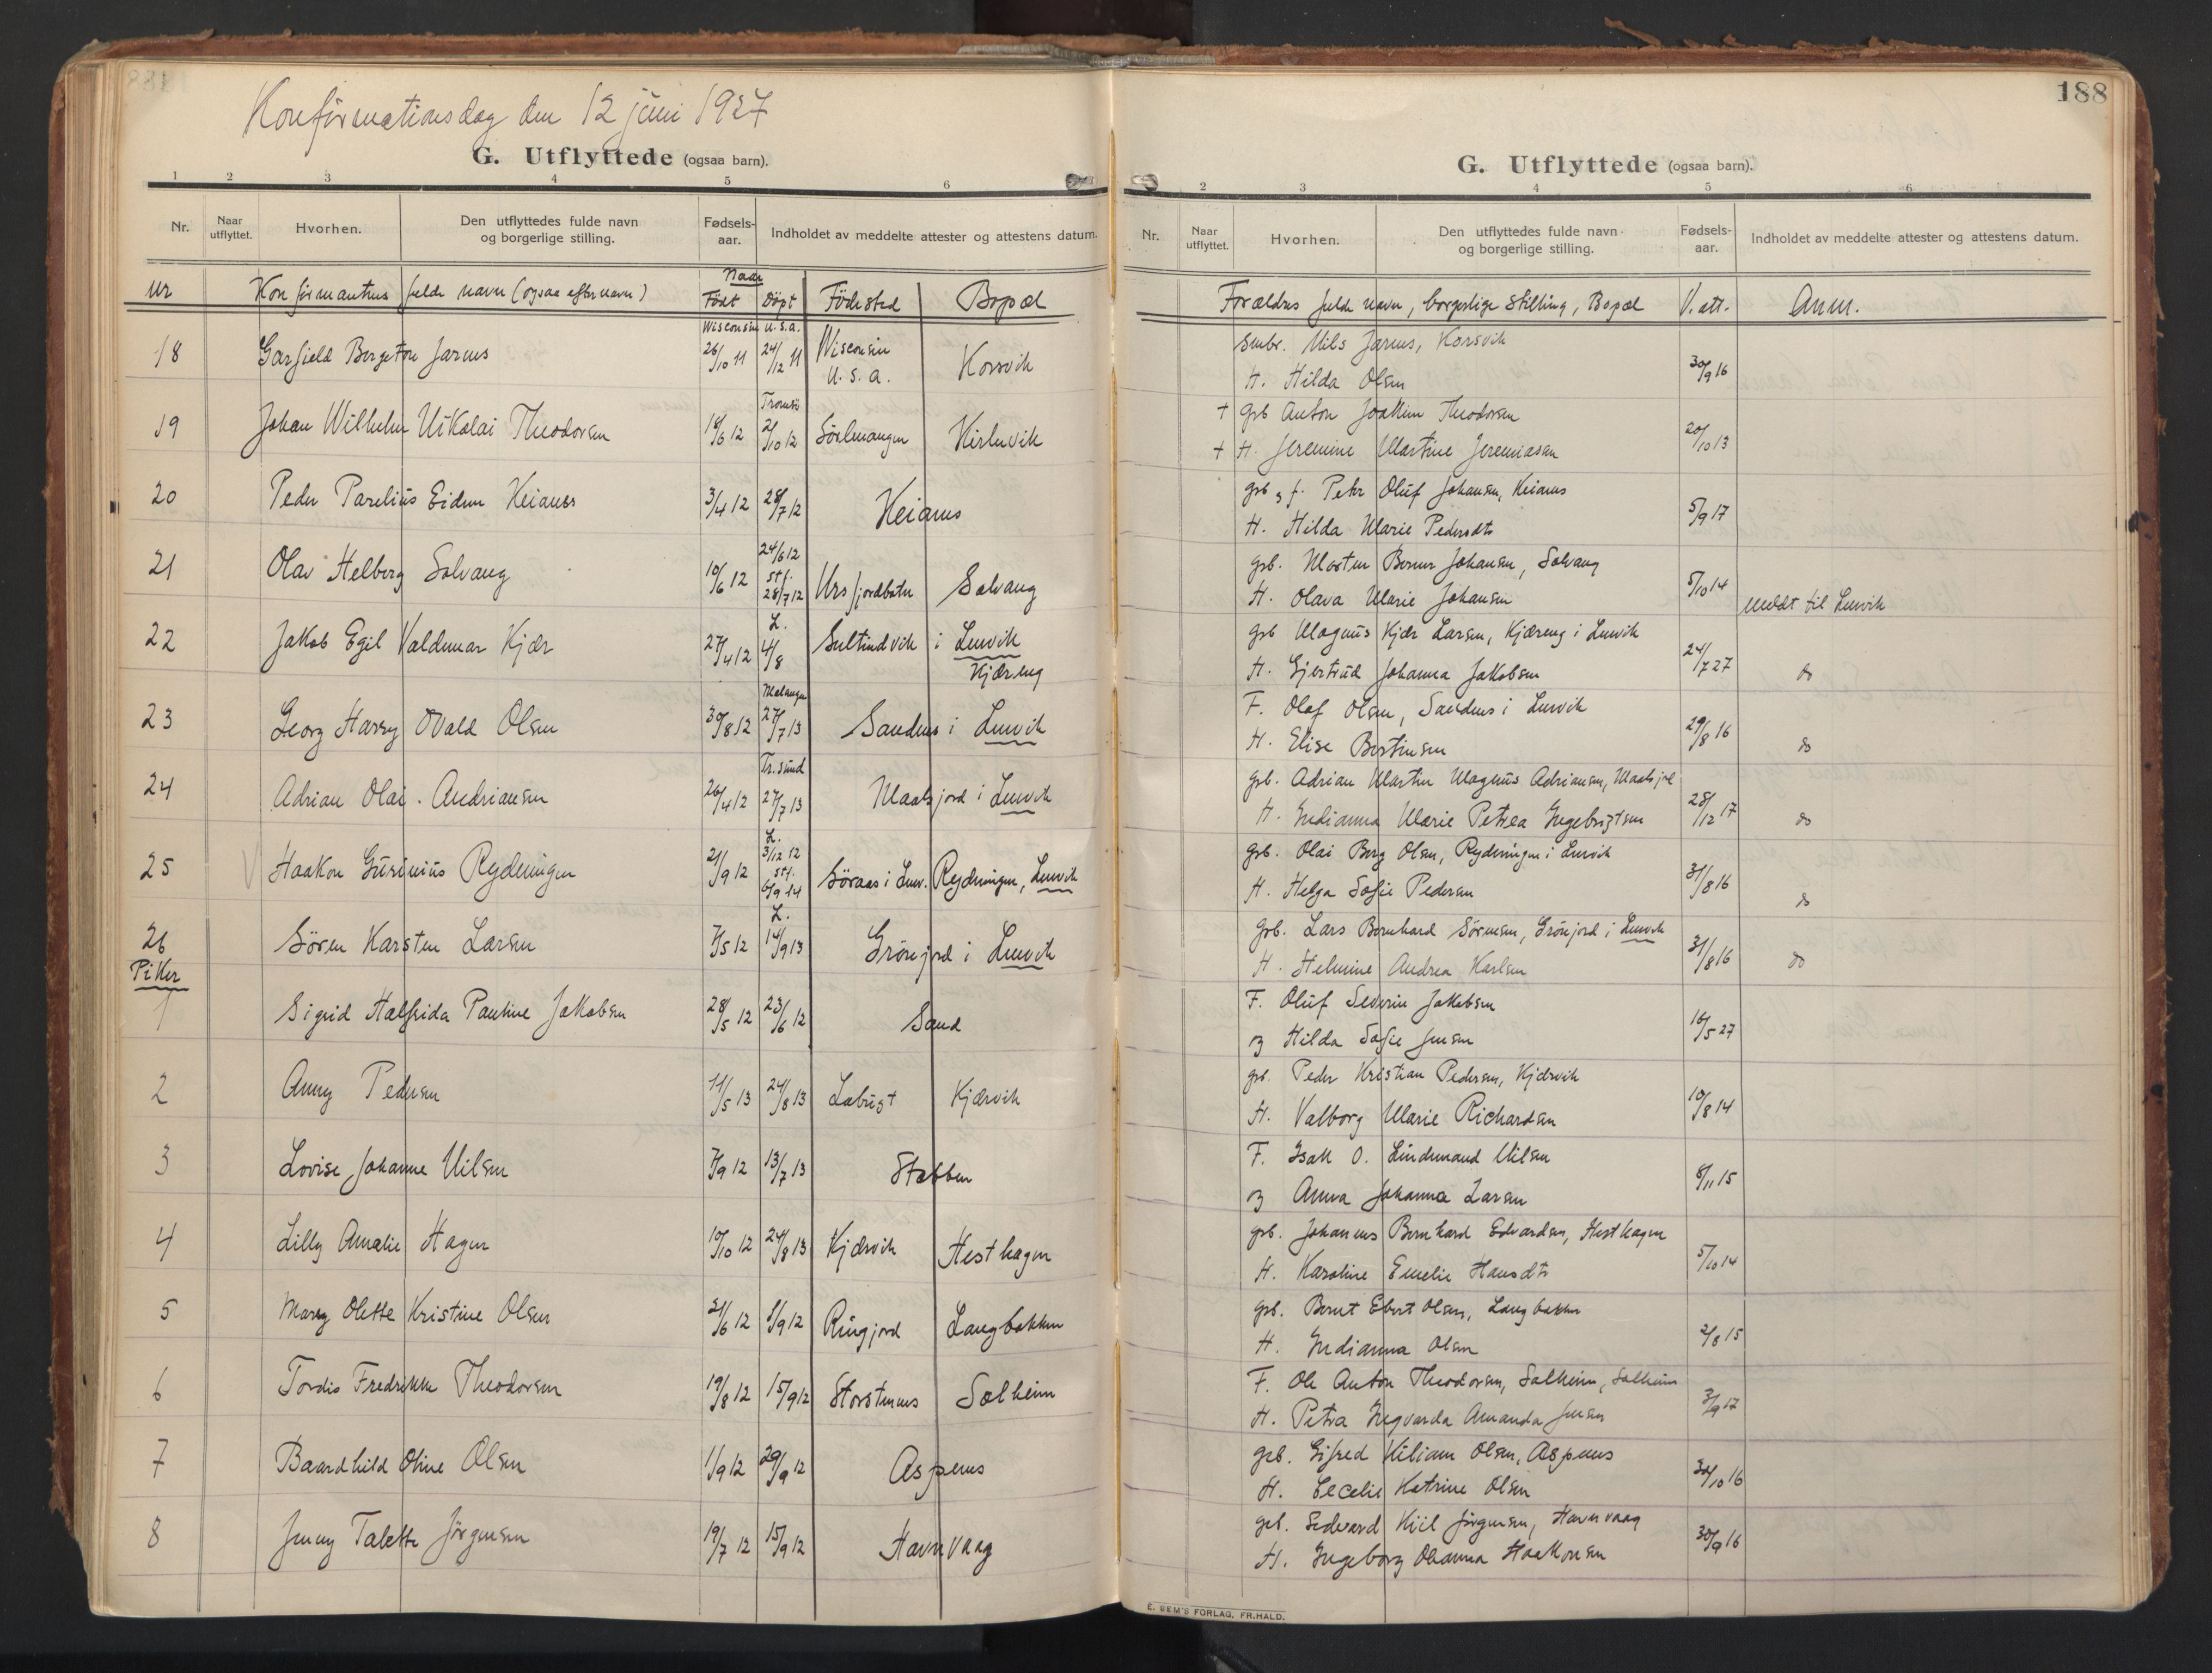 Konfirmationsdag den 12 juni 1927
G. Utflyttede (ogsaa barn).
1 2 3 4 5 6
Nr. Naar utflyttet. Hvorhen. Den utflyttedes fulde navn og borgerlige stilling. Fødsels-aar. Indholdet av meddelte attester og attestens datum.
Nr Konfirmantens fulde navn (ogsaa efternavn) Naar Födt Döpt Födested Bopæl
18 Garfield Bergeton Jarnes Wisconsin U.S.a. 26/10 11 24/12 11 Wisconsin U.S.a. Korsvik
19 Johan Wilhelm Nikolai Theodorsen 18/6 12 Tromsö 2/10 12 Sörlenangen
20 Peder Parelius Eidum Keianes 3/4 12 28/7 12 Keianes
21 Olav Helberg Solvang 10/6 12 24/6 12 stf. 28/7 12 Ursfjordbotn Solvang
22 Jakob Egil Valdemar Kjær 27/4 12 L. 4/8 Sultindvik i Lenvik Kjæreng
23 Georg Harry Ovald Olsen 30/8 12 Malangen 27/7 13 Sandnes i Lenvik
24 Adrian Olai. Andriansen 26/4 12 Tr.sund 27/7 13 Maalsjord i Lenvik
25 Haakon Gusinius Rydningen 21/9 12 L. 3/12 12 stf. 6/9 14 Söraas i Lenv. Rydningen, Lenvik
26 Sören Karsten Larsen 7/5 12 L. 14/9 13 Grönjord i Lenvik
Piker
1 Sigrid Halfrida Pauline Jakobsen 28/5 12 23/6 12 Sand
2 Anny Pedersen 11/5 13 24/8 13 Labugt Kjærvik
3 Lovise Johanne Nilsen 7/9 12 13/7 13 Stabben
4 Lilly Amalie Hagen 10/10 12 24/8 13 Kjærvik Hesthagen
5 Mary Olette Kristine Olsen 21/6 12 1/9 12 Ringjord Langbakken
6 Tordis Fredrikke Theodorsen 19/8 12 15/9 12 Storstennes Solheim
7 Baardhild Oline Olsen 1/9 12 29/9 12 Aspenes
8 Jenny Talette Jörgensen 19/7 12 15/9 12 Havnvaag
188
G. Utflyttede (ogsaa barn).
2 3 4 5 6
Nr. Naar utflyttet. Hvorhen. Den utflyttedes fulde navn og borgerlige stilling. Fødsels-aar. Indholdet av meddelte attester og attestens datum.
Forældres fulde navn, borgerlige stilling, Bopæl V. att. Anm.
Smbr. Nils Jarnes, Korsvik
H. Hilda Olsen 30/9 16
+ grb Anton Joakim Theodorsen
+ H. Jeremine Martine Jeremiasen 20/10 13
grb s f. Peter Oluf Johansen, Keianes
H. Hilda Marie Pedersdtr 5/9 17
grb. Morten Berner Johansen, Solvang
H. Olava Marie Johansen 5/10 14 meldt til Lenvik
grb Magnus Kjær Larsen, Kjæreng i Lenvik
H. Gjertrud Johanna Jakobsen 24/7 27 do
F. Olaf Olsen, Sandnes i Lenvik
H. Elise Bertinsen 29/8 16 do
grb. Adrian Martin Magnus Adriansen, Maalsjord
H. Indianna Marie Petrea Ingebrigtsen 28/12 17 do
grb. Olai Berg Olsen, Rydningen i Lenvik
H. Helga Sofie Pedersen 31/8 16 do
Grb. Lars Bernhard Sörensen, Grönjord i Lenvik
H. Helmine Andrea Karlsen 31/8 16 do
F. Oluf Severin Jakobsen
og Hilda Sofie Jensen 16/5 27
grb. Peder Kristian Pedersen, Kjærvik
H. Valborg Marie Richardsen 10/8 14
F. Isak O. Lindemand Nilsen
og Anna Johanna Larsen 8/11 15
grb. Johannes Bernhard Edvardsen, Hesthagen
H. Karoline Emelie Hansdtr 5/10 14
grb. Bernt Ebert Olsen, Langbakken
H. Indianna Olsen 2/8 15
F. Ole Anton Theodorsen, Solheim, Solheim
H. Petra Ingvarda Amanda Jensen 3/9 17
grb. Sifred Kiliam Olsen, Aspenes
H. Cecelie Katrine Olsen 30/10 16
grb. Sedvard Kiil Jörgensen, Havnvaag
H. Ingeborg Olianna Haakonsen 30/9 16
E. SEM'S FORLAG, FR.HALD.